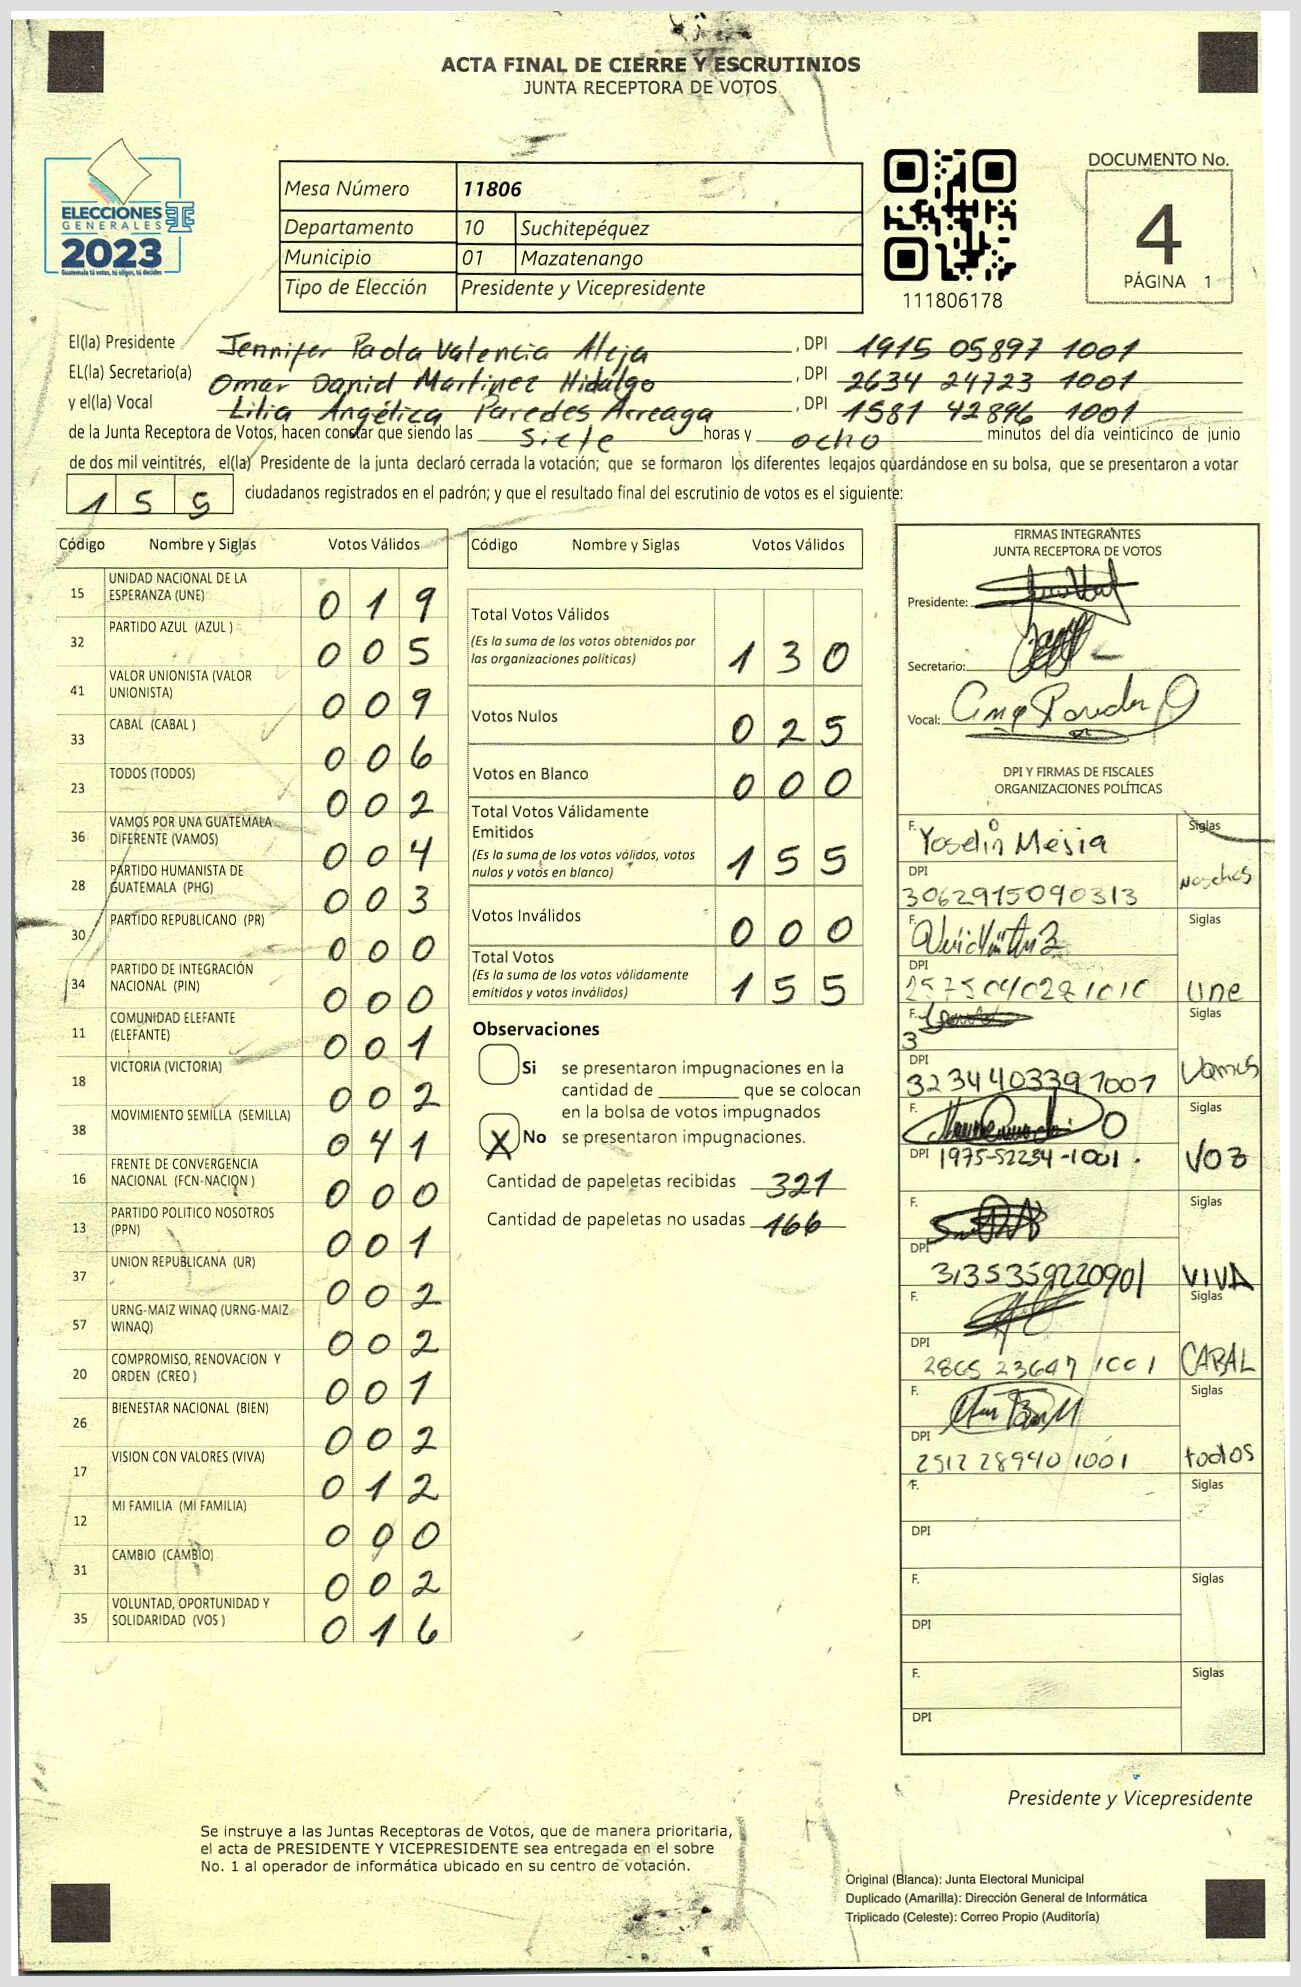 ACTA FINAL DE CIERRE Y ESCRUTINIOS
JUNTA RECEPTORA DE VOTOS
ELECCIONES
GENERALES
2023
Guatemala tú votas, tú eliges, tú decides
Mesa Número 11806
Departamento 10 Suchitepéquez
Municipio 01 Mazatenango
Tipo de Elección Presidente y Vicepresidente
111806178
DOCUMENTO No.
4
PÁGINA 1
El(la) Presidente Jennifer Paola Valencia Aleja, DPI 1915 05897 1001
EL(la) Secretario(a) Omar Daniel Martinez Hidalgo, DPI 2634 24723 1001
y el(la) Vocal Lilia Angélica Paredes Arreaga, DPI 1581 42896 1001
de la Junta Receptora de Votos, hacen constar que siendo las siete horas y ocho minutos del día veinticinco de junio
de dos mil veintitrés, el(la) Presidente de la junta declaró cerrada la votación; que se formaron los diferentes legajos guardándose en su bolsa, que se presentaron a votar
155 ciudadanos registrados en el padrón; y que el resultado final del escrutinio de votos es el siguiente:
Código Nombre y Siglas Votos Válidos
15 UNIDAD NACIONAL DE LA ESPERANZA (UNE) 019
32 PARTIDO AZUL (AZUL ) 005
41 VALOR UNIONISTA (VALOR UNIONISTA) 009
33 CABAL (CABAL ) 006
23 TODOS (TODOS) 002
36 VAMOS POR UNA GUATEMALA DIFERENTE (VAMOS) 004
28 PARTIDO HUMANISTA DE GUATEMALA (PHG) 003
30 PARTIDO REPUBLICANO (PR) 000
34 PARTIDO DE INTEGRACIÓN NACIONAL (PIN) 000
11 COMUNIDAD ELEFANTE (ELEFANTE) 001
18 VICTORIA (VICTORIA) 002
38 MOVIMIENTO SEMILLA (SEMILLA) 041
16 FRENTE DE CONVERGENCIA NACIONAL (FCN-NACION ) 000
13 PARTIDO POLITICO NOSOTROS (PPN) 001
37 UNION REPUBLICANA (UR) 002
57 URNG-MAIZ WINAQ (URNG-MAIZ WINAQ) 002
20 COMPROMISO, RENOVACION Y ORDEN (CREO ) 001
26 BIENESTAR NACIONAL (BIEN) 002
17 VISION CON VALORES (VIVA) 012
12 MI FAMILIA (MI FAMILIA) 000
31 CAMBIO (CAMBIO) 002
35 VOLUNTAD, OPORTUNIDAD Y SOLIDARIDAD (VOS ) 016
Código Nombre y Siglas Votos Válidos
Total Votos Válidos 130
(Es la suma de los votos obtenidos por
las organizaciones políticas)
Votos Nulos 025
Votos en Blanco 000
Total Votos Válidamente
Emitidos 155
(Es la suma de los votos válidos, votos
nulos y votos en blanco)
Votos Inválidos 000
Total Votos 155
(Es la suma de los votos válidamente
emitidos y votos inválidos)
Observaciones
Si se presentaron impugnaciones en la
cantidad de ________ que se colocan
en la bolsa de votos impugnados
X No se presentaron impugnaciones.
Cantidad de papeletas recibidas 321
Cantidad de papeletas no usadas 166
FIRMAS INTEGRANTES
JUNTA RECEPTORA DE VOTOS
Presidente:
Secretario:
Vocal:
DPI Y FIRMAS DE FISCALES
ORGANIZACIONES POLÍTICAS
F. Yoselin Mejia Siglas
DPI 3062915090313
F. Siglas
DPI 2575040281010 une
F. Siglas
3
DPI 3234403391001 Vamos
F. Siglas
DPI 1975-52234-1001. VOZ
F. Siglas
DPI 3135359220901 VIVA
F. Siglas
DPI 2865 23647 1001 CABAL
F. Siglas
DPI 2512 28940 1001 todos
F. Siglas
DPI
F. Siglas
DPI
F. Siglas
DPI
Presidente y Vicepresidente
Se instruye a las Juntas Receptoras de Votos, que de manera prioritaria,
el acta de PRESIDENTE Y VICEPRESIDENTE sea entregada en el sobre
No. 1 al operador de informática ubicado en su centro de votación.
Original (Blanca): Junta Electoral Municipal
Duplicado (Amarilla): Dirección General de Informática
Triplicado (Celeste): Correo Propio (Auditoría)